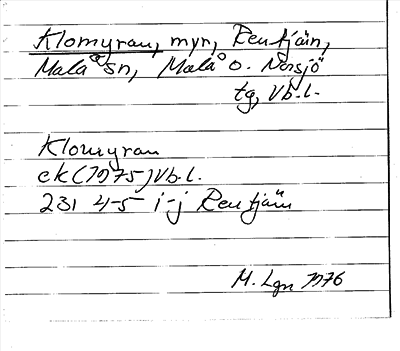 Klomyran, myr, Rentjäin,
Malå sn, Malå o. Norsjö
tg, Vb.l.
Klomyran
ek (1975) Vb.l.
231 4-5 i-j Rentjäin
M. Lgn 1976